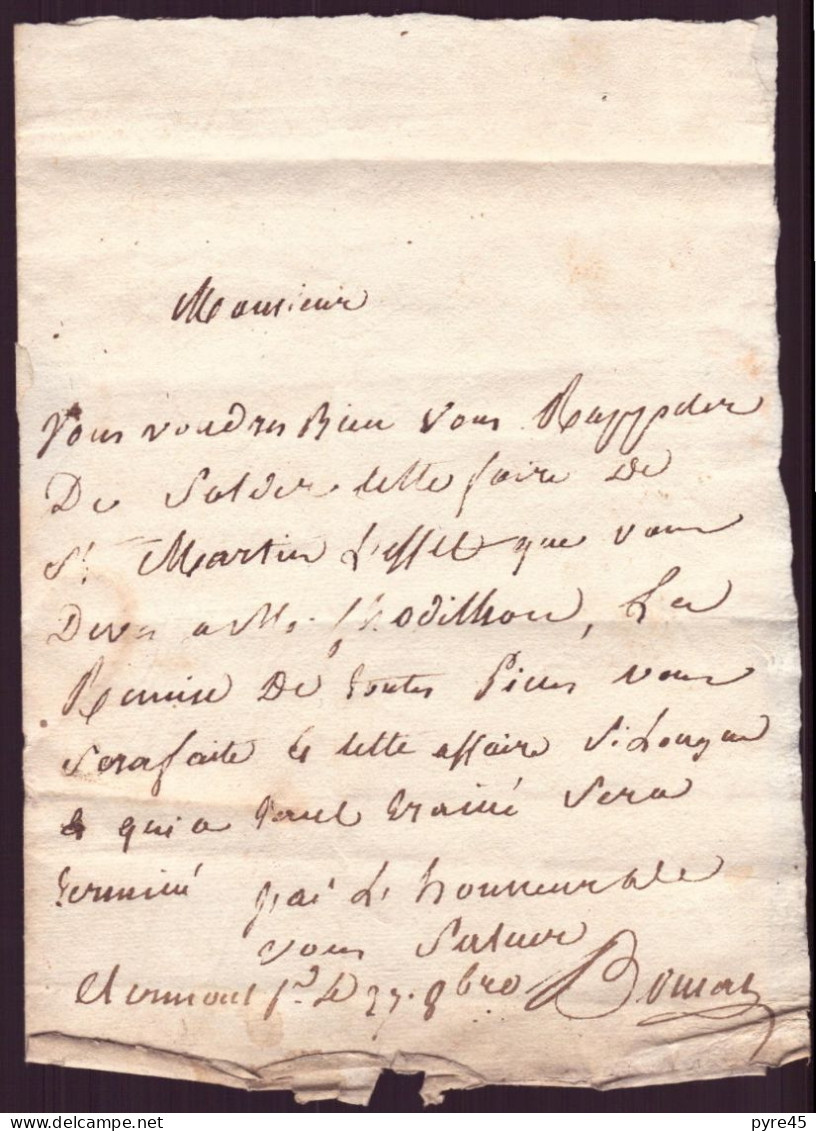 Monsieur
Vous voudres Bien Vous Rappeler
De Solder cette foire de
St Martin L'effet que vous
Deves a Mr. , La
Remise De toutes Pieces vous
Sera faite & cette affaire Si Longue
& qui a tant trainé Sera
terminé
jai L'honneur de
vous Saluer
Clermont fd. le 27. 8bre
delcampe.net
pyre45